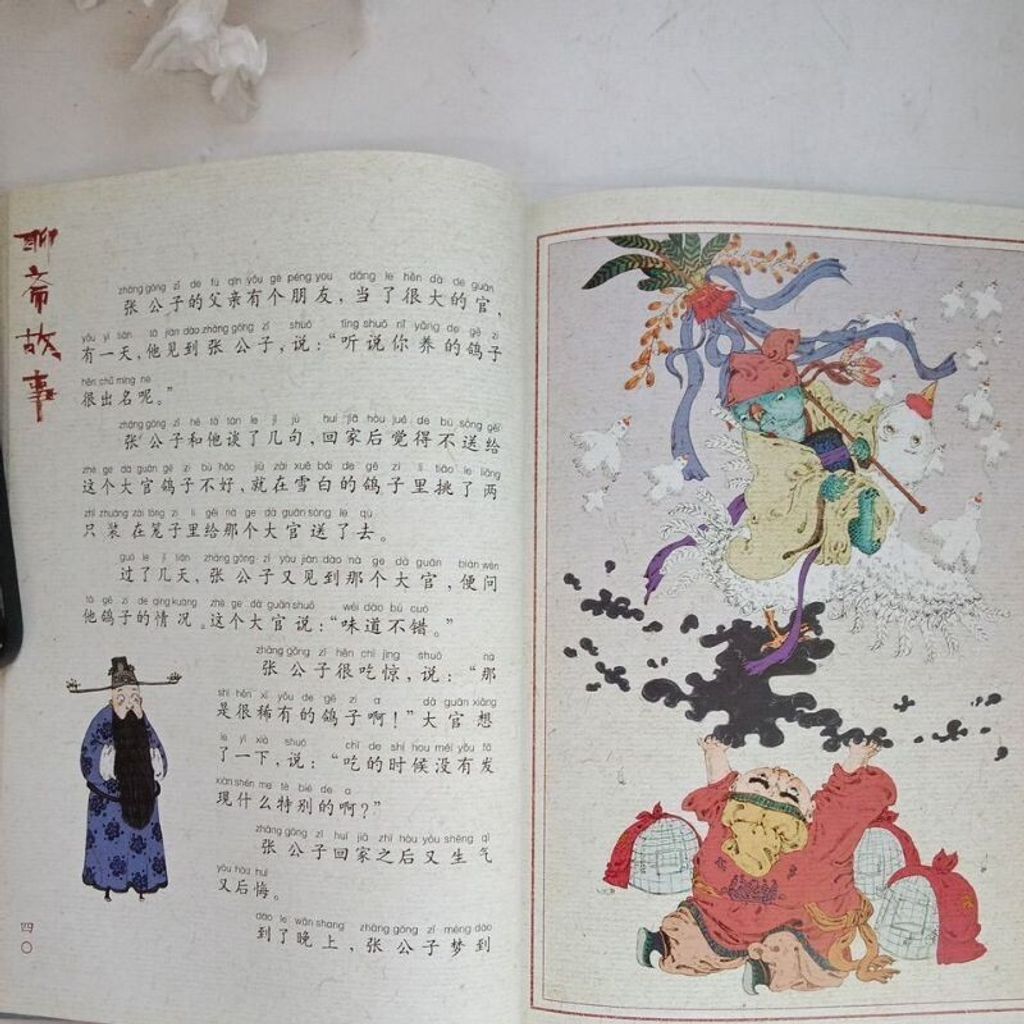 聊斋故事
zhāng gōng zǐ de fù qīn yǒu gè péng you dāng le hěn dà de guān
张公子的父亲有个朋友，当了很大的官，
yǒu yì tiān tā jiàn dào zhāng gōng zǐ shuō tīng shuō nǐ yǎng de gē zi
有一天，他见到张公子，说：“听说你养的鸽子
hěn chū míng ne
很出名呢。”
zhāng gōng zǐ hé tā tán le jǐ jù huí jiā hòu jué de bú sòng gěi
张公子和他谈了几句，回家后觉得不送给
zhè ge dà guān gē zi bù hǎo jiù zài xuě bái de gē zi lǐ tiāo le liǎng
这个大官鸽子不好，就在雪白的鸽子里挑了两
zhī zhuāng zài lóng zi lǐ gěi nà ge dà guān sòng le qù
只装在笼子里给那个大官送了去。
guò le jǐ tiān zhāng gōng zǐ yòu jiàn dào nà ge dà guān biàn wèn
过了几天，张公子又见到那个大官，便问
tā gē zi de qíng kuàng zhè ge dà guān shuō wèi dào bú cuò
他鸽子的情况。这个大官说：“味道不错。”
zhāng gōng zǐ hěn chī jīng shuō nà
张公子很吃惊，说：“那
shì hěn xī yǒu de gē zi a dà guān xiǎng
是很稀有的鸽子啊！”大官想
le yí xià shuō chī de shí hou méi yǒu fā
了一下，说：“吃的时候没有发
xiàn shén me tè bié de a
现什么特别的啊？”
zhāng gōng zǐ huí jiā zhī hòu yòu shēng qì
张公子回家之后又生气
yòu hòu huǐ
又后悔。
dào le wǎn shang zhāng gōng zǐ mèng dào
到了晚上，张公子梦到
四〇